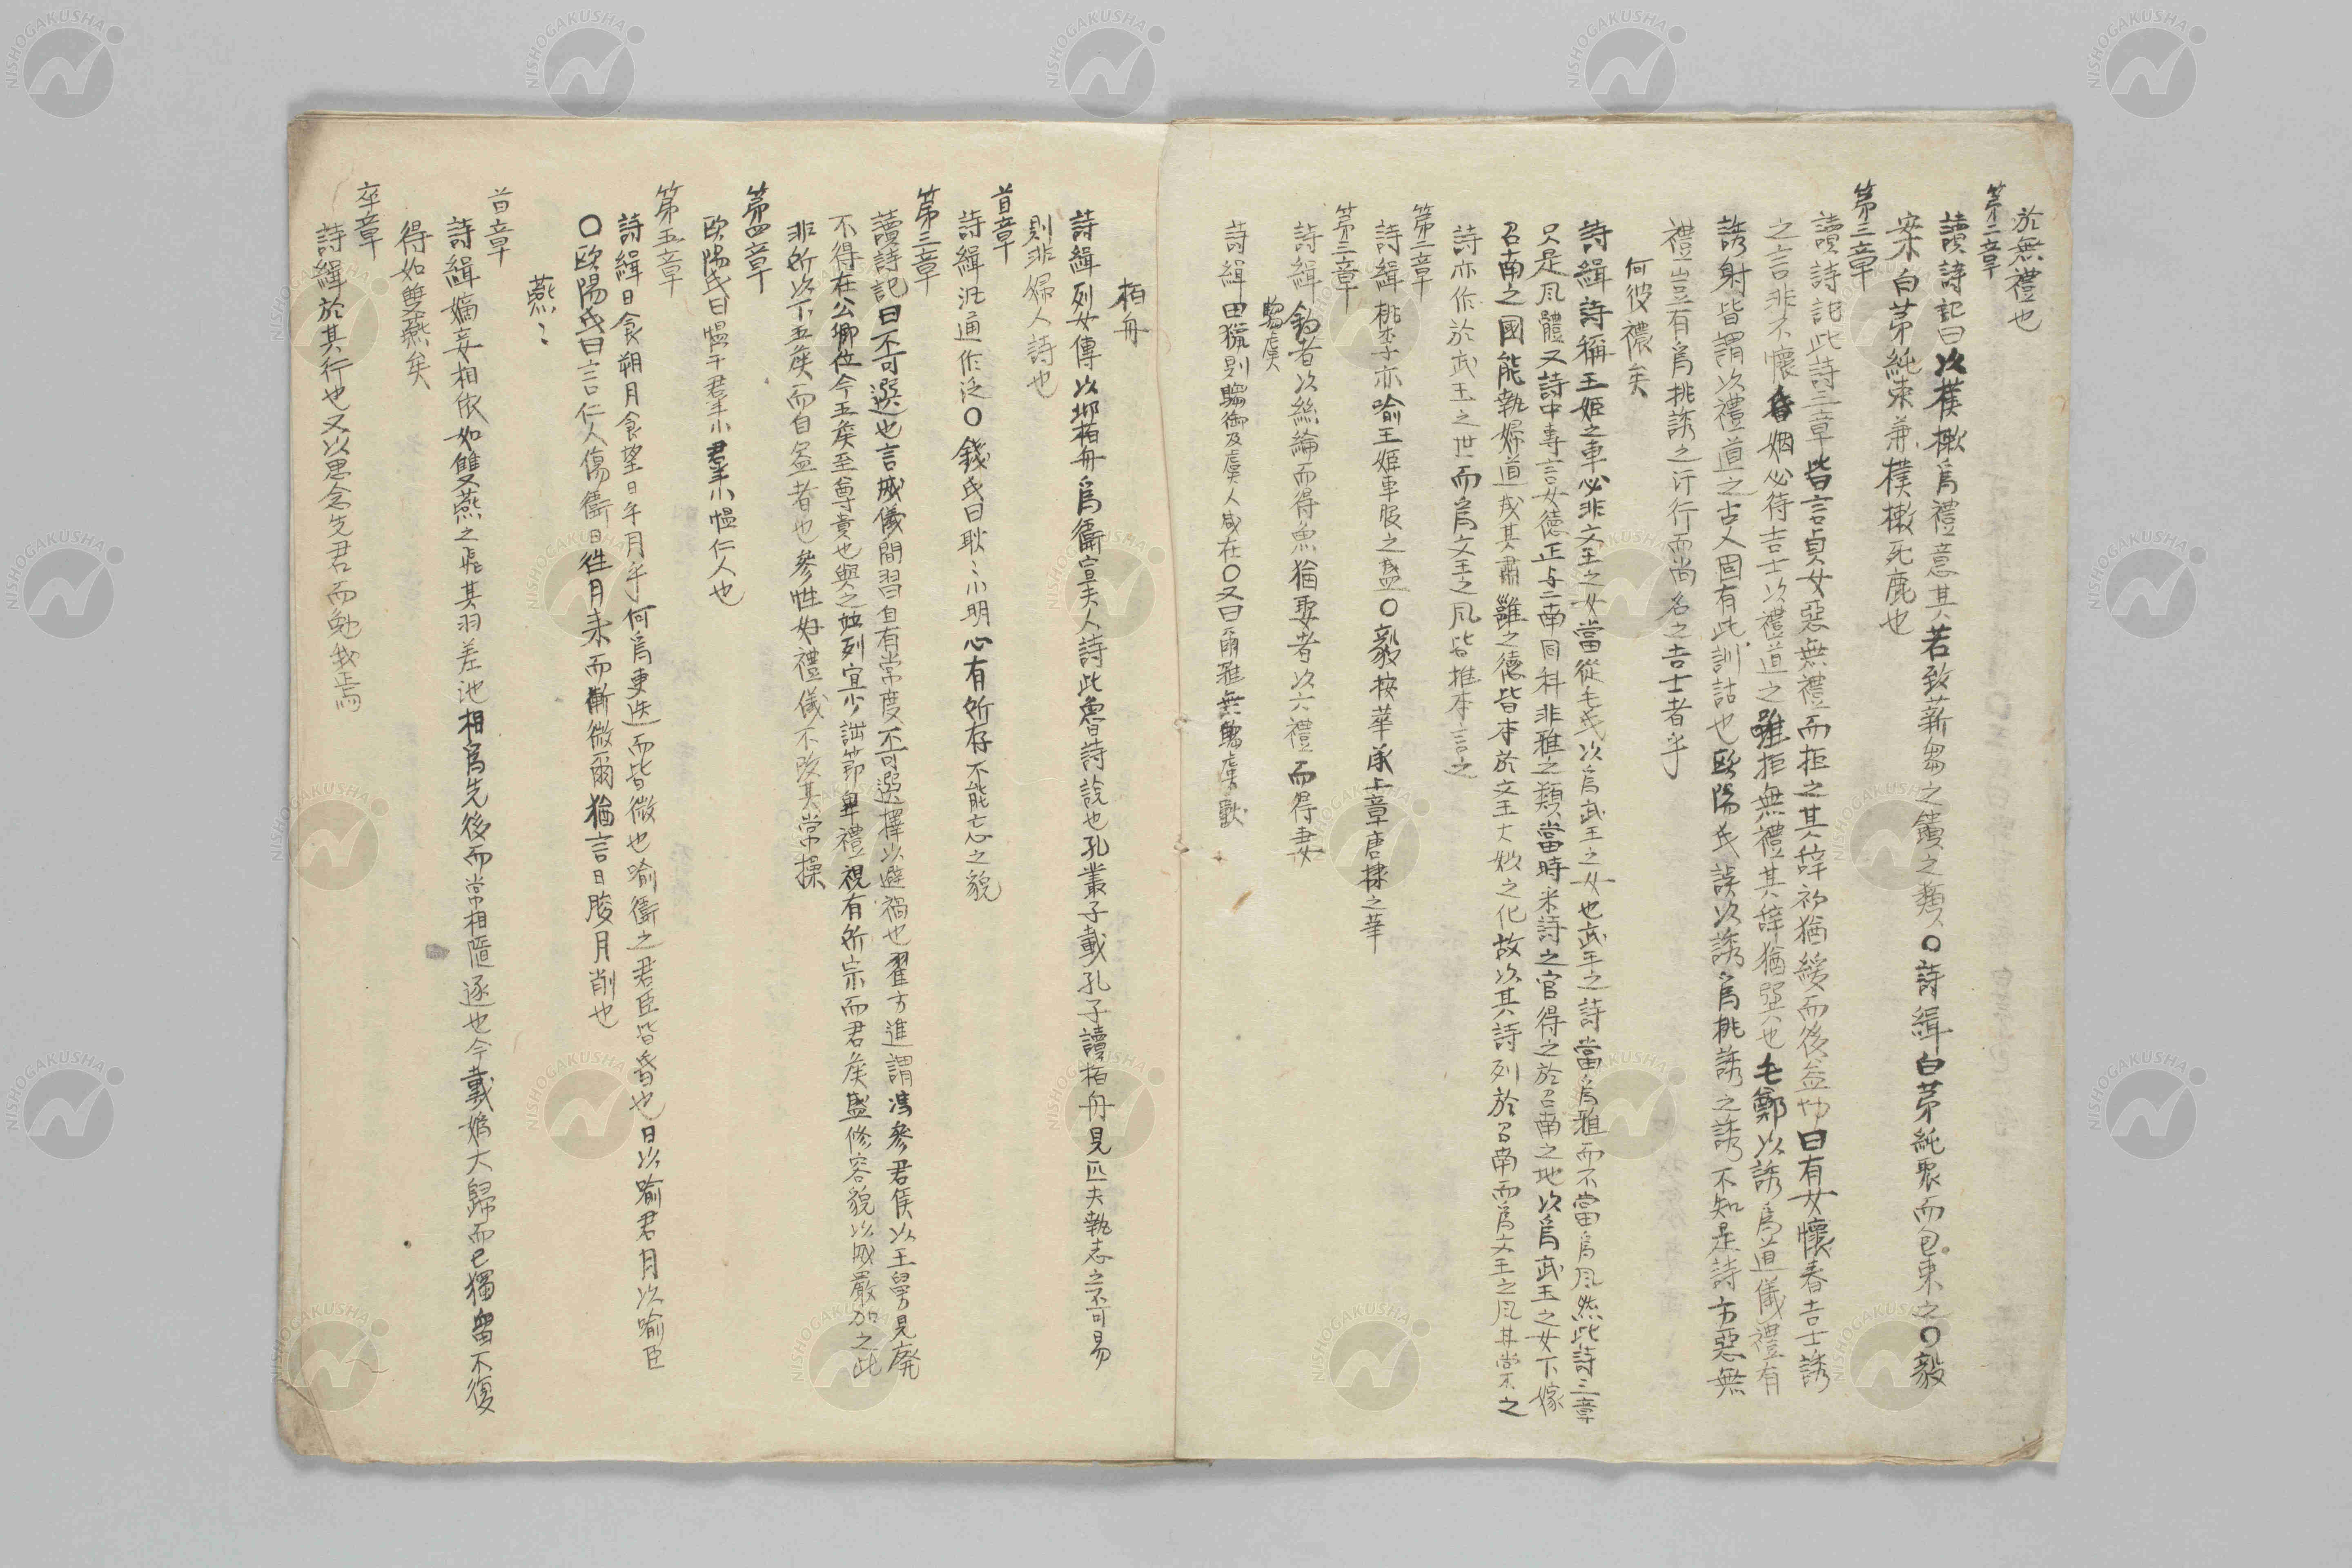 於無禮也
第二章
讀詩記曰以樸樕爲禮意其若致薪芻之饋之類〇詩緝白茅純聚而包束之〇毅
案白茅純束兼樸樕死鹿也
第三章
讀詩記此詩三章皆言貞女惡無禮而拒之其辞初猶緩而後益切曰有女懷春吉士誘
之言非不懷昏姻必待吉士以禮道之雖拒無禮其辞猶巽也毛鄭以誘爲道儀禮有
誘射皆謂以禮道之古人固有此訓詁也歐陽氏誤以誘爲挑誘之誘不知是詩方惡無
禮豈有爲挑誘之汙行而尚名之吉士者乎
何彼襛矣
詩緝詩稱王姬之車必非文王之女當從毛氏以爲武王之女也武王之詩當爲雅而不當爲風然此詩三章
只是風體又詩中専言女徳正与二南同科非雅之類當時采詩之官得之於召南之地以爲武王之女下嫁
召南之國能執婦道成其肅雝之德皆本於文王大姒之化故以其詩列於召南而爲文王之風其實不之
詩亦作於武王之世而爲文王之風皆推本言之
第二章
詩緝桃李亦喻王姬車服之盛〇毅按華承上章唐棣之華
第三章
詩緝釣者以絲綸而得魚猶娶者以六禮而得妻
騶虞
詩緝田獵則騶御及虞人咸在〇又曰爾雅無騶虞獸
栢舟
詩緝列女傳以邶栢舟爲衞宣夫人詩此魯詩説也孔叢子載孔子讀栢舟見匹夫執志之不可易
則非婦人詩也
首章
詩緝汎通作泛〇錢氏曰耿〻小明心有所存不能忘之貌
第三章
讀詩記曰不可選也言威儀閒習自有常度不可選擇以避禍也翟方進謂馮參君侯以王舅見廃
不得在公卿位今五侯至尊貴也與之並列宜少詘節卑禮視有所宗而君侯盛修容貌以威嚴加之此
非所以下五侯而自益者也參性好禮儀不改其常操
第四章
歐陽氏曰愠于羣小羣小愠仁人也
第五章
詩緝日食朔月食望日乎月乎何爲更迭而皆微也喻衞之君臣皆昏也日以喻君月以喻臣
〇歐陽氏曰言仁人傷衞日徃月来而漸微爾猶言日朘月削也
燕〻
首章
詩緝嫡妾相依如雙燕之飛其羽差池相爲先後而常相隨逐也今戴嬀大歸而已獨留不復
得如雙燕矣
卒章
詩緝於其行也又以思念先君而勉我焉